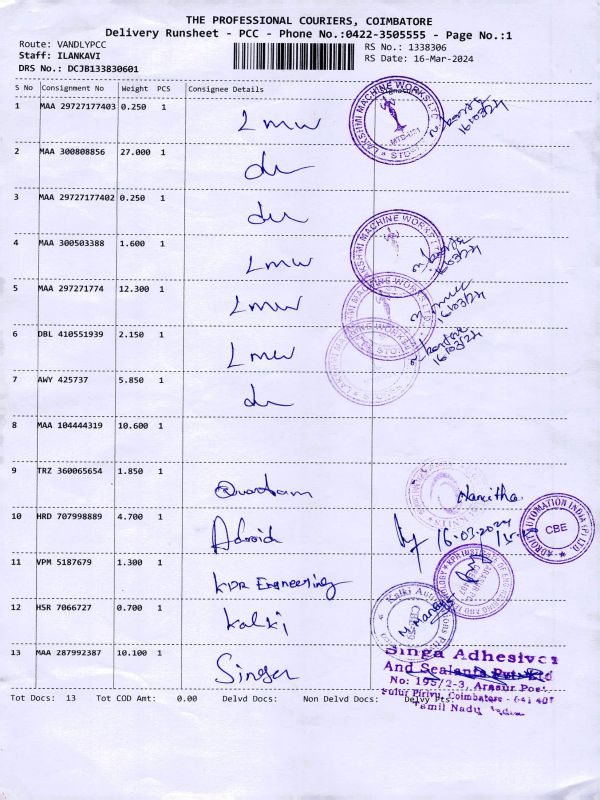 THE PROFESSIONAL COURIERS, COIMBATORE
Delivery Runsheet - PCC - Phone No.:0422-3505555 - Page No.:1
Route: VANDLYPCC
Staff: ILANKAVI
DRS No.: DCJB133830601
RS No.: 1338306
RS Date: 16-Mar-2024
S No Consignment No Weight PCS Consignee Details
1 MAA 29727177403 0.250 1 LMW
LAKSHMI MACHINE WORKS LTD
16/03/24
2 MAA 300808856 27.000 1 du
3 MAA 29727177402 0.250 1 du
4 MAA 300503388 1.600 1 LMW
LAKSHMI MACHINE WORKS
16/03/24
5 MAA 297271774 12.300 1 LMW
16/03/24
6 DBL 410551939 2.150 1 LMW
16/03/24
7 AWY 425737 5.850 1 du
8 MAA 104444319 10.600 1
9 TRZ 360065654 1.850 1
10 HRD 707998889 4.700 1 Adroid
16.03.2024
ADROIT AUTOMATION INDIA (P) LTD
CBE
11 VPM 5187679 1.300 1 KPR Engineering
12 HSR 7066727 0.700 1 Kalki
13 MAA 287992387 10.100 1 Singer
Singa Adhesives
And Sealants Pvt Ltd
No: 195/2-3, Arasur Post
Pirivu, Coimbatore - 641 407
Tamil Nadu, India
Tot Docs: 13 Tot COD Amt: 0.00 Delvd Docs: Non Delvd Docs: Delvy Pts: